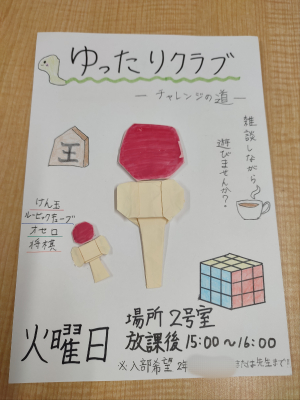 ゆったりクラブ
― チャレンジの道 ―
雑談しながら
遊びませんか?
王
けん玉
ルービックキューブ
オセロ
将棋
火曜日
場所 2号室
放課後 15:00~16:00
※入部希望 2年 先生まで!